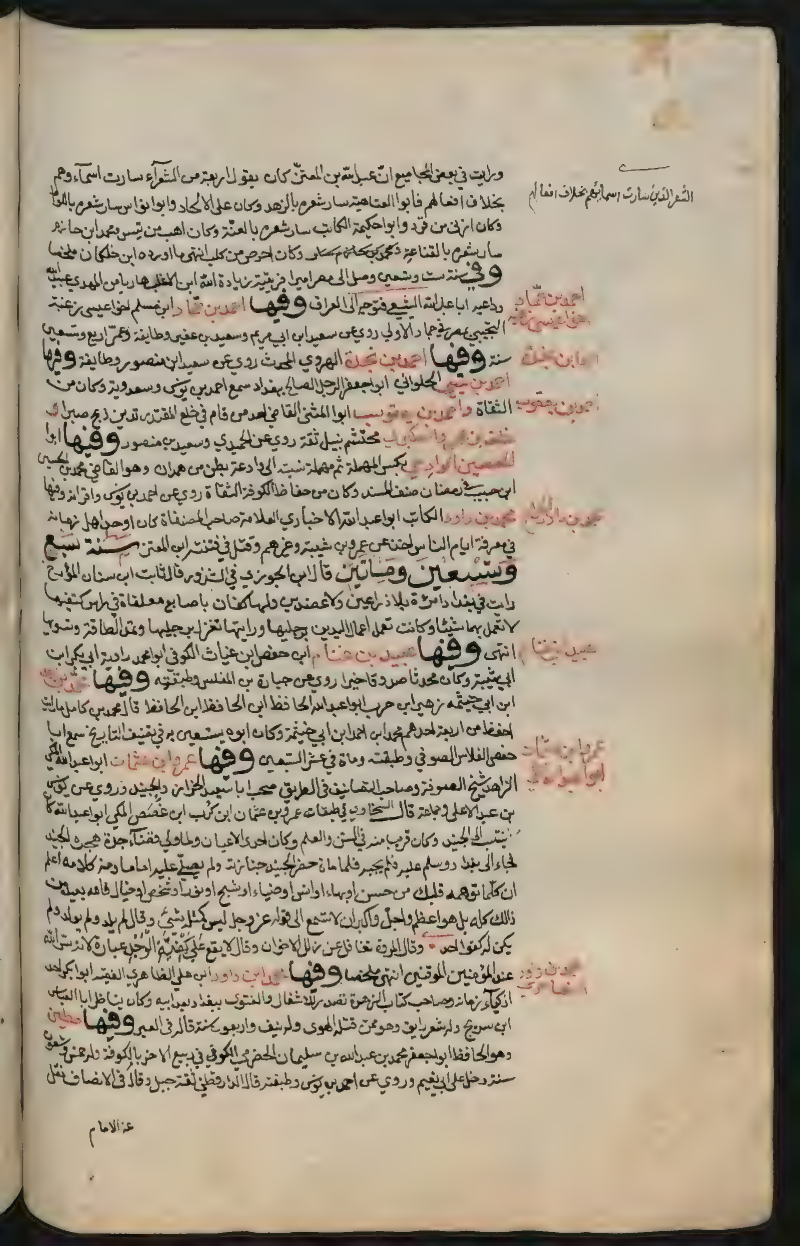 ورايت في بعض المجاميع ان عبد الله بن المعتز كان يقول اربعة من الشعرآء سارت اسمآءوهم
بخلاف افعالهم فابوا العتاهية سار شعره بالزهد وكان على الالحاد وابوا نواس سار شعره باللواط
وكان ازنى من قرد وابوا حكيمة الكاتب سار شعره بالعنة وكان اهب من تيس ومحمد ابن حازم
سار شعره بالقناعة وكان احرص من كلب انتهى ما اورده ابن خلكان ملخصا
وفي سنة ست وتسعين وصل الى مصر اميرا فريقية زيادة الله ابن الاغلب هاربا من المهدي عبيد الله
وداعيه ابا عبد الله الشيعي فتوجه الى العراق وفيها احمد بن حماد ابن مسلم اخوا عيسى زغبة
التجيبي بمصر في جماد الاولى روى عن سعيد ابن ابي مريم وسعيد بن عفير وطايفة وعمر اربع وتسعين
سنة وفيها احمد بن نجدة الهروي المحدث روى عن سعيد ابن منصور وطايفة وفيها
احمد بن يحيى الحلواني ابوا جعفر الرجل الصالح ببغداد سمع احمد بن يونس وسعدوية وكان من
الثقاة واحمد بن يعقوب ابوا المثنى القاضي احد من قام في خلع المقتدر تدين ذبح صبرا و
خلف بن عمرو العكبري محتشم نبيل ثقة روى عن الحميدي وسعيد بن منصور وفيها ابوا
الحصين الوادعي بكسر المهملة ثم مهملة نسبته الى وادعة بطن من همدان وهو القاضي محمد بن الحسين
ابن حبيب في رمضان صنف المسند وكان من حفاظ الكوفة الثقاة روى عن احمد بن يونس واقرانه وفيها
محمد بن داود الكاتب ابوا عبد الله الاخباري العلامة صاحب المصنفاة كان اوحد اهل زمانه
في معرفة ايام الناس اخذ عن عمرو بن شيبة وغيرهم وقتل في فتنة ابن المعتز سنة سبع
وتسعين وماتين قال ابن الجوزي في الشذور قال ثابت ابن سنان المؤرخ
رايت في بغداد امراة بلا ذراعين ولا عضدين ولها كفان باصابع معلقاة في راس كتفيها
لا تعمل بهما شيئا وكانت تعمل اعمال اليدين برجليها ورايتها تغزل برجليها وتمد الطاقة وتسويها
انتهى وفيها عبيد بن غنام ابن حفص ابن غياث الكوفي ابوا محمد راوية ابي بكر ابن
ابي شيبة وكان محدثا صدوقا خيرا روى عن جبارة بن المغلس وطبقته وفيها محمد بن
ابن ابي خيثمة زهير ابن حرب ابوا عبد الله الحافظ ابن الحافظ ابن الحافظ قال محمد بن كامل ما رايت
احفظ من اربعة احدهم محمد ابن احمد ابن ابي خيثمة وكان ابوه يستعين به في تصنيف التاريخ سمع ابا
حفص الفلاس الصوفي وطبقته وماة في عشر السبعين وفيها عمرو ابن عثمان ابوا عبد الله المكي
الزاهد شيخ الصوفية وصاحب التصانيف في الطريق صحب ابا سعيد الخراز والجنيد وروى عن يونس
بن عبد الاعلى وجماعة قال السخاوي في طبقات عمرو بن عثمان ابن كرب ابن غصص المكي ابوا عبد الله كان
ينتسب الى الجنيد وكان قريب منه في السن والعلم وكان احد الاعيان ولما ولي قضآء جدة هجره الجنيد
فجاء الى بغداد وسلم عليه فلم يجبه فلما ماة حضر الجنيد جنازته ولم يصلي عليه اماما ومن كلامه اعلم
ان كلما توهمه قلبك من حسن او بهاء او انس او ضياء او شبح او نور او شخص او خيال فالله بعيد من
ذلك كله بل هو اعظم واجل واكبر ان لا تسمع الى قوله عز وجل ليس كمثله شيئ وقال لم يلد ولم يولد ولم
يكن له كفوا احد وقال المروة تغافل عن زلل الاخوان وقال لا يقع على كيفية الوجد عبارة لانه سر الله
عند المؤمنين الموقنين انتهى ملخصا وفيها محمد ابن داود ابن علي الظاهري الفقيه ابوا بكر احد
اذكيآء زمانه وصاحب كتاب الزهرة تصدر للاشغال والفتوى ببغداد بعد ابيه وكان يناظر ابا العباس
ابن سريج وله شعر رايق وهو ممن قتله الهوى وله نيف واربعون سنة قاله في العبر وفيها مطين
وهو الحافظ ابوا جعفر محمد بن عبد الله بن سليمان الحضرمي الكوفي في ربيع الاخر بالكوفة وله خمس وتسعون
سنة دخل على ابي نعيم وروى عن احمد بن يونس وطبقته قال الدارقطني ثقة جبل وقال في الانصاف نقل
عن الامام
الشعر الذين سارت اسمايهم بخلاف افعالهم
احمد بن حماد
اخوا عيسى زغبة
احمد ابن نجدة
احمد بن يعقوب
محمد بن داود
عبيد ابن غنام
عمرو ابن عثمان
ابوا عبد الله المكي
محمد بن داود
الظاهري